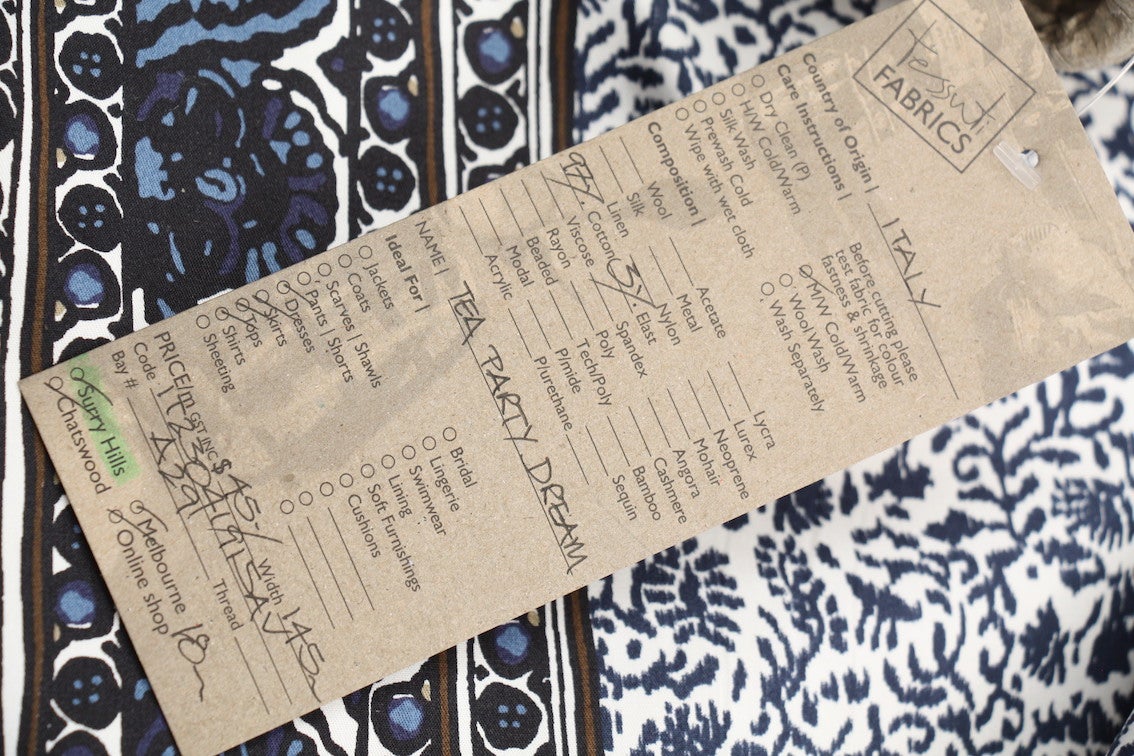 Tessuti
FABRICS
Country of Origin | ITALY
Care Instructions |
Dry Clean (P)
H/W Cold/Warm
Silk Wash
Prewash Cold
Wipe with wet cloth
Before cutting please
test fabric for colour
fastness & shrinkage
M/W Cold/Warm
Wool Wash
Wash Separately
Composition |
Wool Acetate Lycra
Silk Metal Lurex
Linen Nylon Neoprene
97% Cotton 3% Elast Mohair
Viscose Spandex Angora
Rayon Poly Cashmere
Beaded Tech/Poly Bamboo
Modal P/mide Sequin
Acrylic P/urethane
NAME | TEA PARTY DREAM
Ideal For |
Jackets Bridal
Coats Lingerie
Scarves | Shawls Swimwear
Pants | Shorts Lining
Dresses Soft Furnishings
Skirts Cushions
Tops
Shirts
Sheeting
PRICE/m GST INC $45-/ Width 145
Code
Bay # A291 Thread
Surry Hills Melbourne 18m
Chatswood Online shop